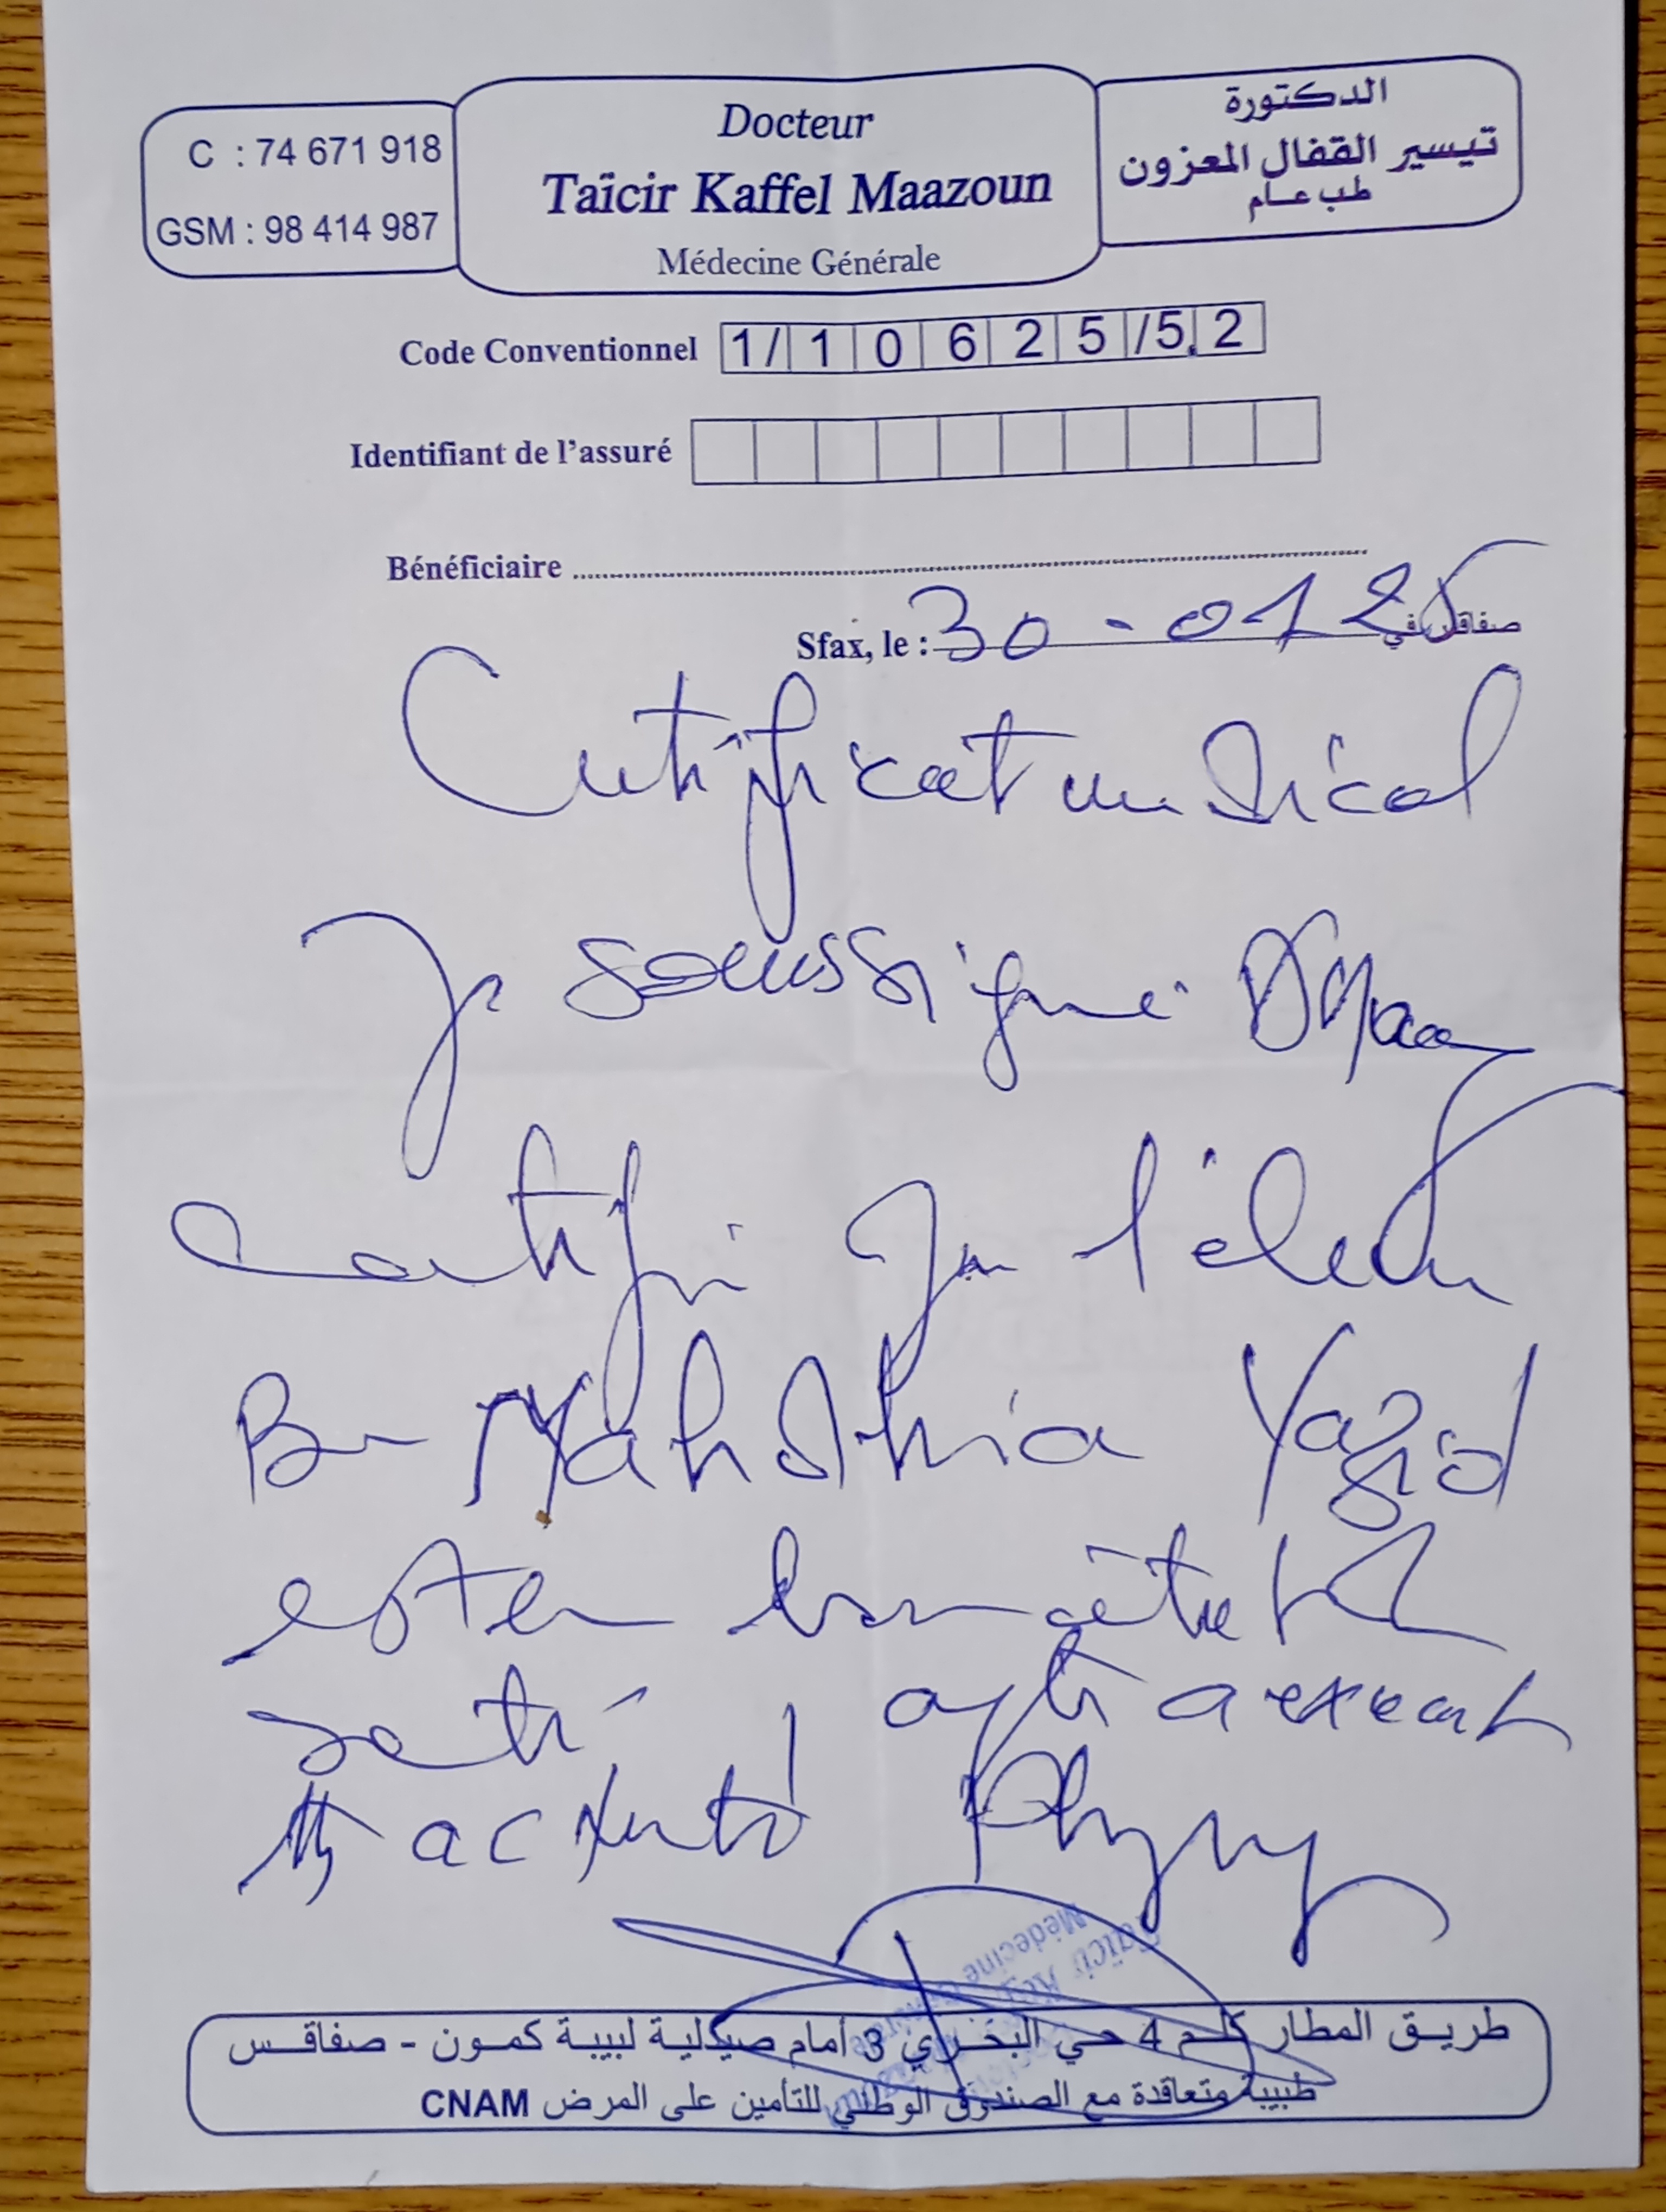 C : 74 671 918
GSM : 98 414 987
Docteur
Taïcir Kaffel Maazoun
Médecine Générale
الدكتورة
تيسير القفال المعزون
طب عام
Code Conventionnel 1/10625/52
Identifiant de l'assuré
Bénéficiaire
Sfax, le : 30-01 صفاقس في
Certificat médical
Je soussigné Dr Maaz
certifie que l'élève
Ben Yazid
est en bon état de
santé, apte a exercer
Taïcir
Médecine
طريق المطار كلم 4 حي البخري 3 أمام صيدلية لبيبة كمون - صفاقس
طبيبة متعاقدة مع الصندوق الوطني للتأمين على المرض CNAM